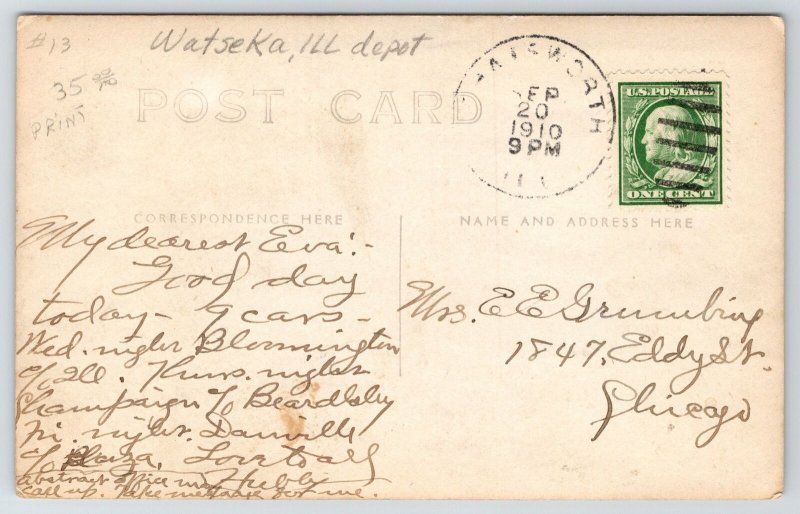 #13
Watseka, Ill depot
35 00/10
PRINT
POST CARD
CHATSWORTH
SEP
20
1910
9 PM
ILL
U.S. POSTAGE
ONE CENT
CORRESPONDENCE HERE
NAME AND ADDRESS HERE
My dearest Eva:-
Good day
today - 9 cars -
Wed. night Bloomington
c/o Ill. Thurs. night
Champaign c/o Beardsley
Fri. night. Danville
c/o Plaza, Love to all
Hubby
abstract office may
call up. Take message for me.
Mrs. E E Grumbing
1847, Eddy St.
Chicago